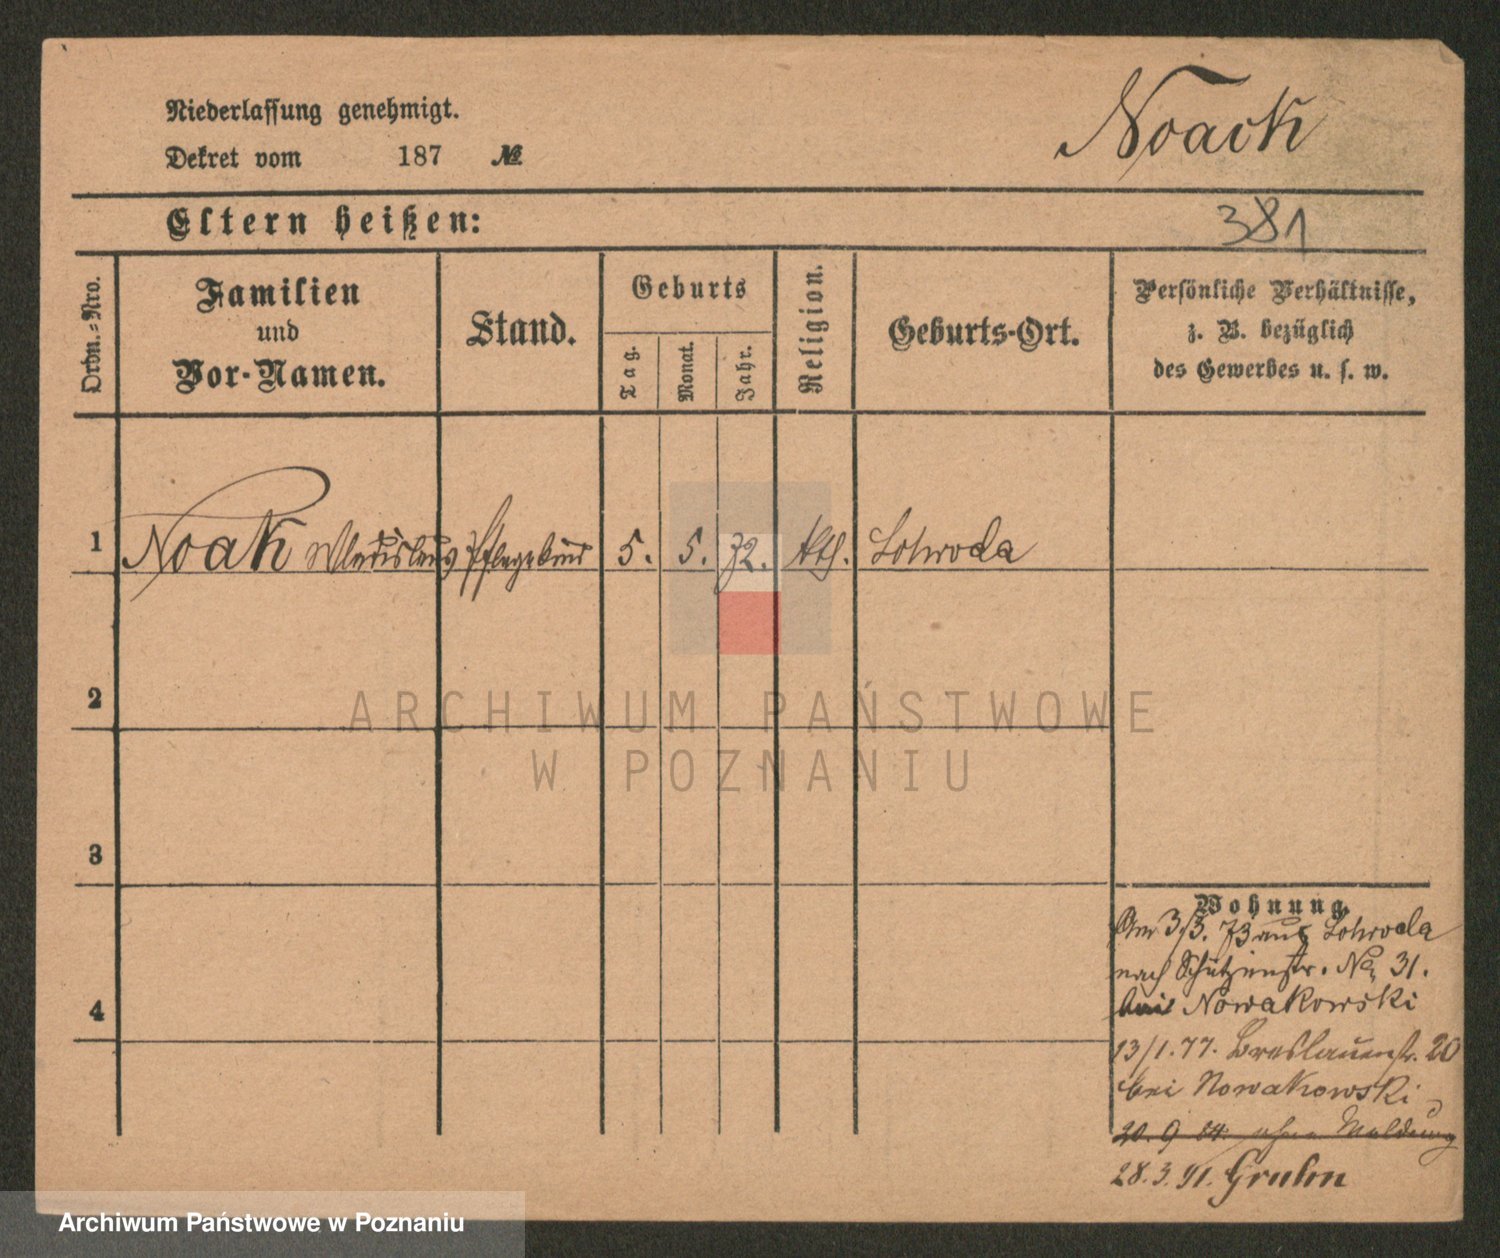 Niederlassung genehmigt.
Dekret vom 187 №
Noack
Eltern heißen:
381
Ordn.-Nro.
Familien
und
Vor-Namen.
Stand.
Geburts
Tag.
Monat.
Jahr.
Religion.
Geburts-Ort.
Persönliche Verhältnisse,
z. B. bezüglich
des Gewerbes u. s. w.
1 Noak Wladislaus Pflegekind 5. 5. 72. kth. Lohroda
2
3
4
Wohnung.
Am 3/3. 73 aus Lohroda
nach Schützenstr. No 31.
bei Nowakowski
13/1.77. Breslauerstr. 20
bei Nowakowski
20. 9 84. ohne Meldung
28.3.91.
ARCHIWUM PAŃSTWOWE
W POZNANIU
Archiwum Państwowe w Poznaniu